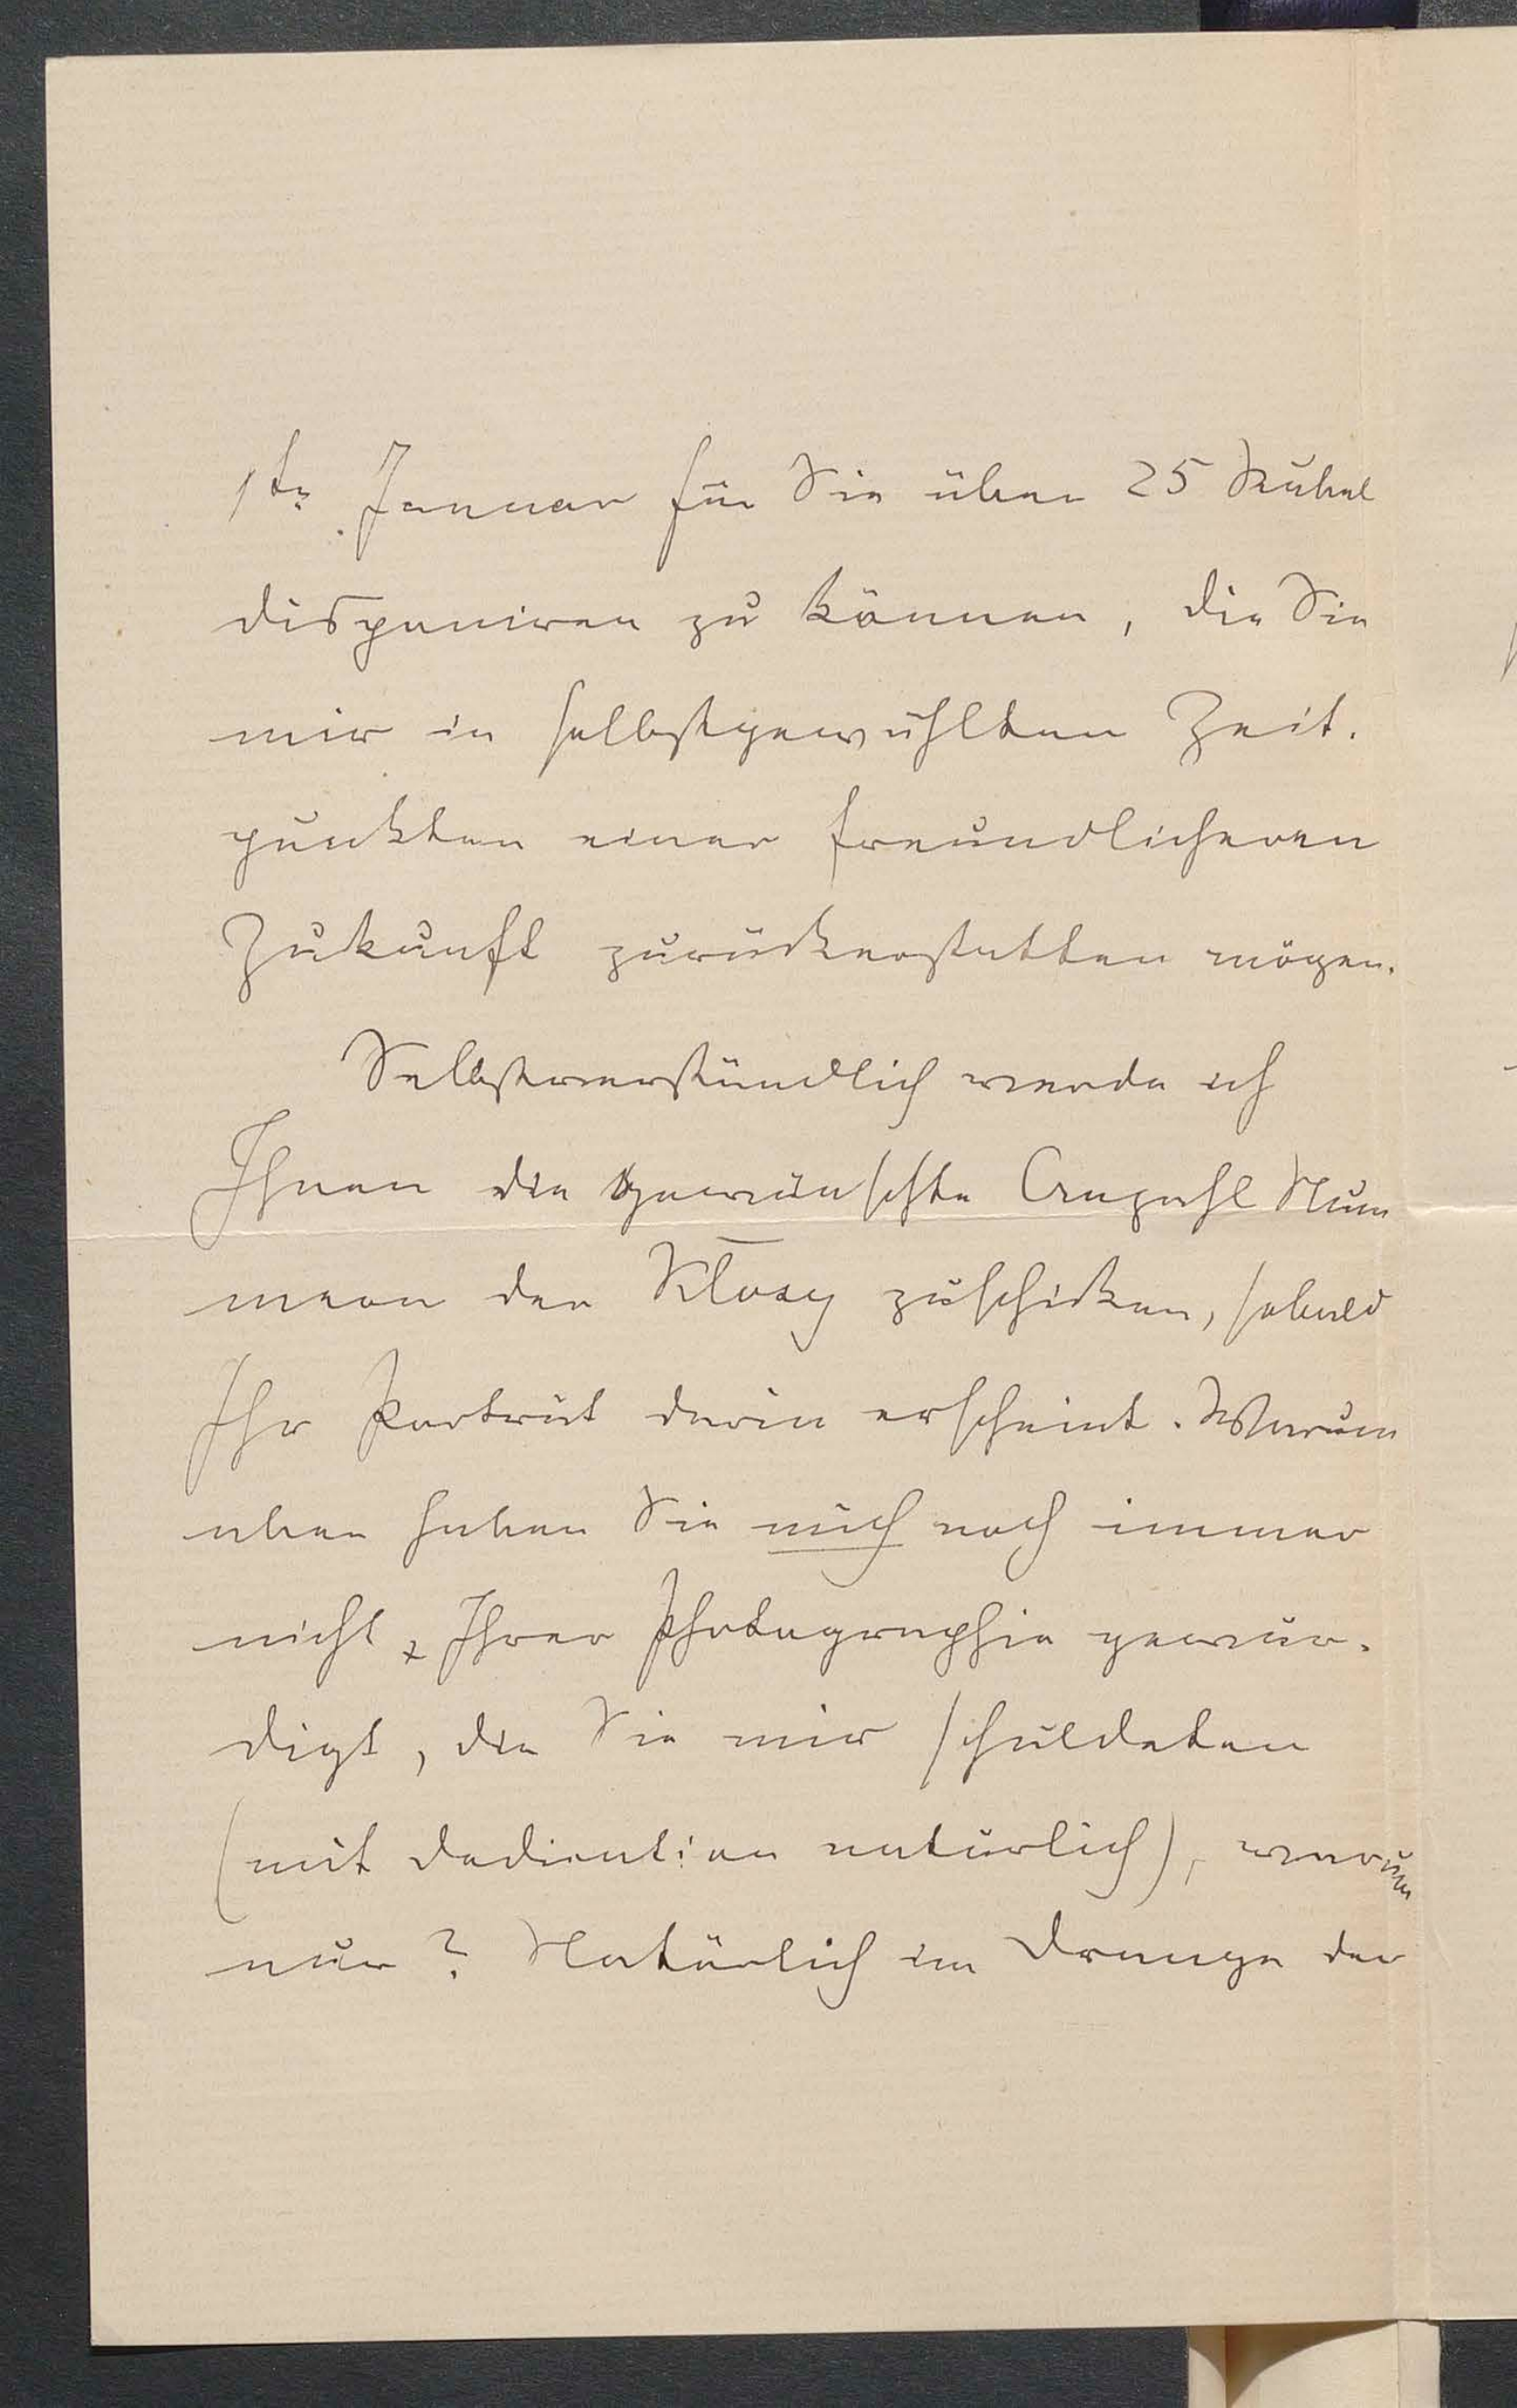 1te Januar für Sie über 25 Rubel
disponiren zu können, die Sie
mir in selbstgewählten Zeit-
punkten einer freundlicheren
Zukunft zurückerstatten mögen.
Selbstverständlich werde ich
Ihnen die gewünschte Anzahl Num
mern der Kłosy zuschicken, sobald
Ihr Porträt darin erscheint. Warum
aber haben Sie mich noch immer
nicht Ihrer Photographie gewür-
digt, die Sie mir schuldeten
(mit Dedication natürlich), warum
nur? Natürlich im Drange der